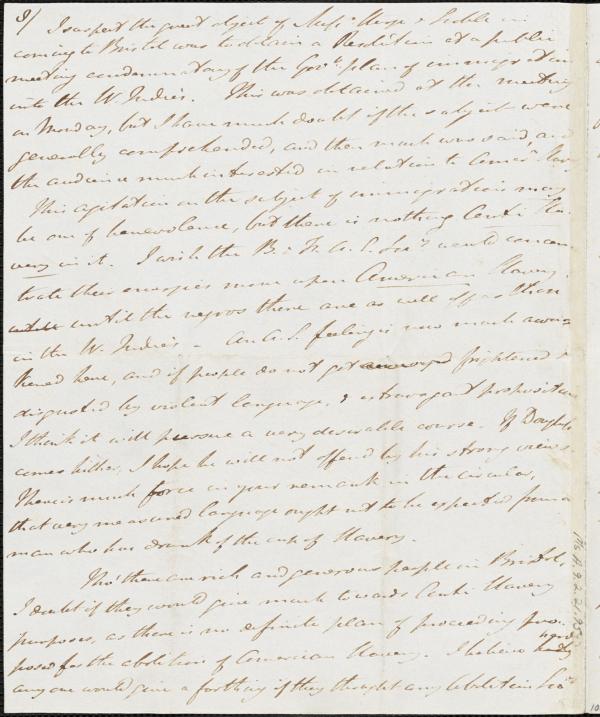 8/ I suspect the great object of Messrs Sturge & Scoble in
coming to Bristol was to obtain a Resolution at a public
meeting condemnatory of the Govts plan of immigration
into the W. Indies. This was obtained at the meeting
on Monday, but I have much doubt if the subject were
generally comprehended, and then much was said, and
the audience much interested in relation to Amern Slavy
This agitation on the subject of immigration may
be one of benevolence, but there is nothing Anti Sla-
very in it. I wish the B. & F. A. S. Socy would concen-
trate their energies more upon American Slavery
until the negros there are as well off as those
in the W. Indies - An A.S. feeling is now much awa-
kened here, and if people do not get frightened &
disgusted by violent language, & extravagant propositions
I think it will pursue a very desirable course. If Douglass
comes hither, I hope he will not offend by his strong views.
There is much force in your remark in the circular,
that very measured language ought not to be expected from a
man who has drank of the cup of Slavery.
Tho' there are rich and generous people in Bristol,
I doubt if they would give much towards Anti Slavery
purposes, as there is no definite plan of proceeding pro-
posed for the abolition of American Slavery. I believe hardly
any one would give a farthing if they thought any Abolition Socy
Ms.A.9.2.